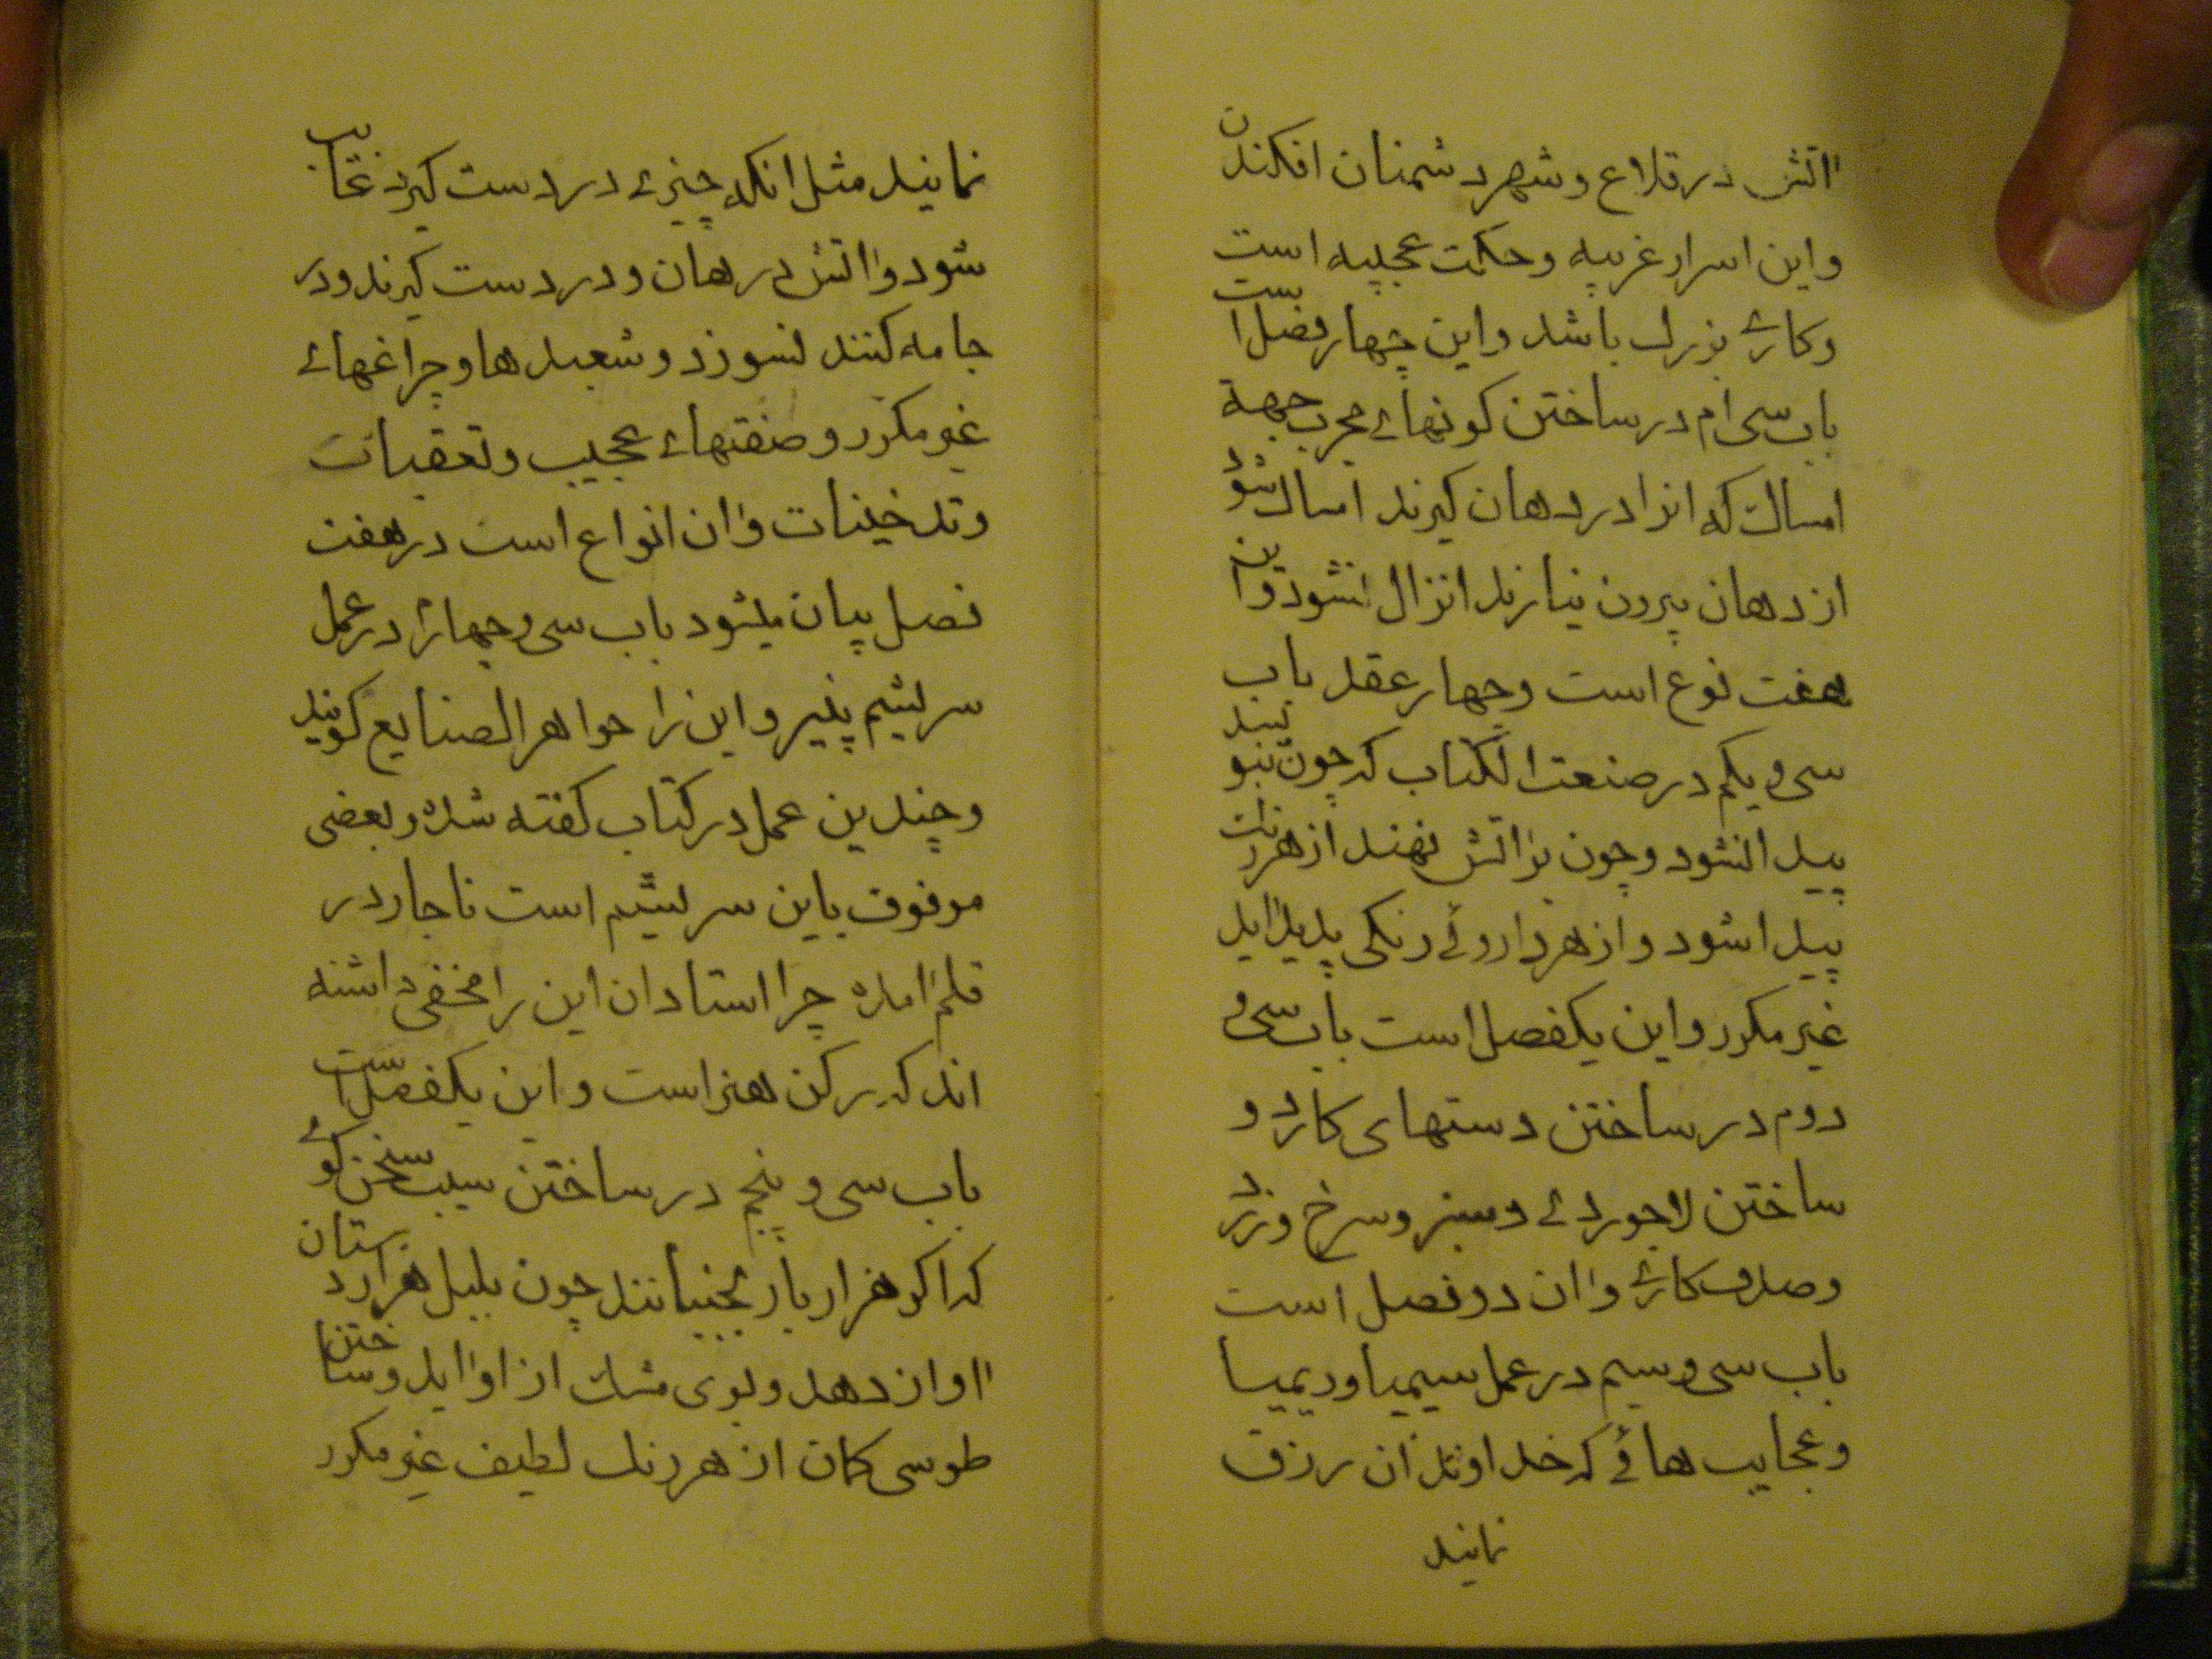 اتش در قلاع و شهر دشمنان افکندن
و این اسرار غریبه و حکمت عجیبه است
و کارے بزرک باشد و این چهار فصل است
باب سی ام در ساختن کونهاے مجرب جهة
امساک که انرا در دهان کیرند امساک شود
از دهان بیرون نیارند انزال نشود و این
هفت نوع است و چهار عقد باب
سی و یکم در صنعت الکتاب که چون بنویسند
پیدا نشود و چون بر اتش نهند از هر رنک
پیدا شود و از هر داروئے رنکی پدید اید
غیر مکرر و این یکفصل است باب سی و
دوم در ساختن دستهای کارد و
ساختن لاجوردے و سبز و سرخ و زرد
و صدف کارے و ان دو فصل است
باب سی و سیم در عمل سیمیا و ریمیا
و عجایب هائے که خداوندان رزق
نمایند
نمایند مثل انکه چیزے در دست کیرد غایب
شود و اتش در دهان و در دست کیرند و در
جامه کنند نسوزد و شعبده ها و چراغهاے
غیر مکرر و صنعتهاے عجیب و تعقیبات
و تدخینات و ان انواع است در هفت
فصل بیان میشود باب سی و چهارم در عمل
سریشم پنیر و این را جواهر الصنایع کویند
و چندین عمل در کتاب کفته شده و بعضی
موقوف باین سریشم است ناچار در
قلم امده چرا استادان این را مخفی داشته
اند که رکن هنر است و این یکفصل است
باب سی و پنجم در ساختن سیب سخن کوے
که اکر هزار بار بجنبانند چون بلبل هزار دستان
اواز دهد و بوی مشک از او اید و ساختن
طوسی کمان از هر رنک لطیف غیر مکرر